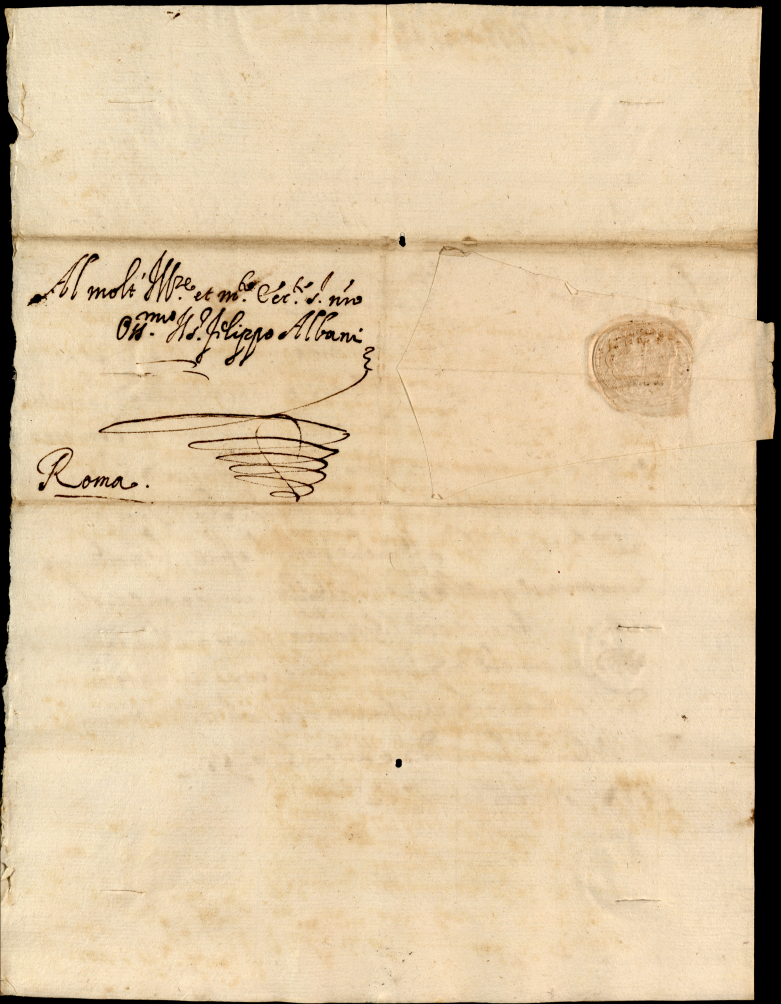 Al molt' Ill.re et m.to Ecc.te S. mio
Oss.mo Il S. Filippo Albani
Roma.